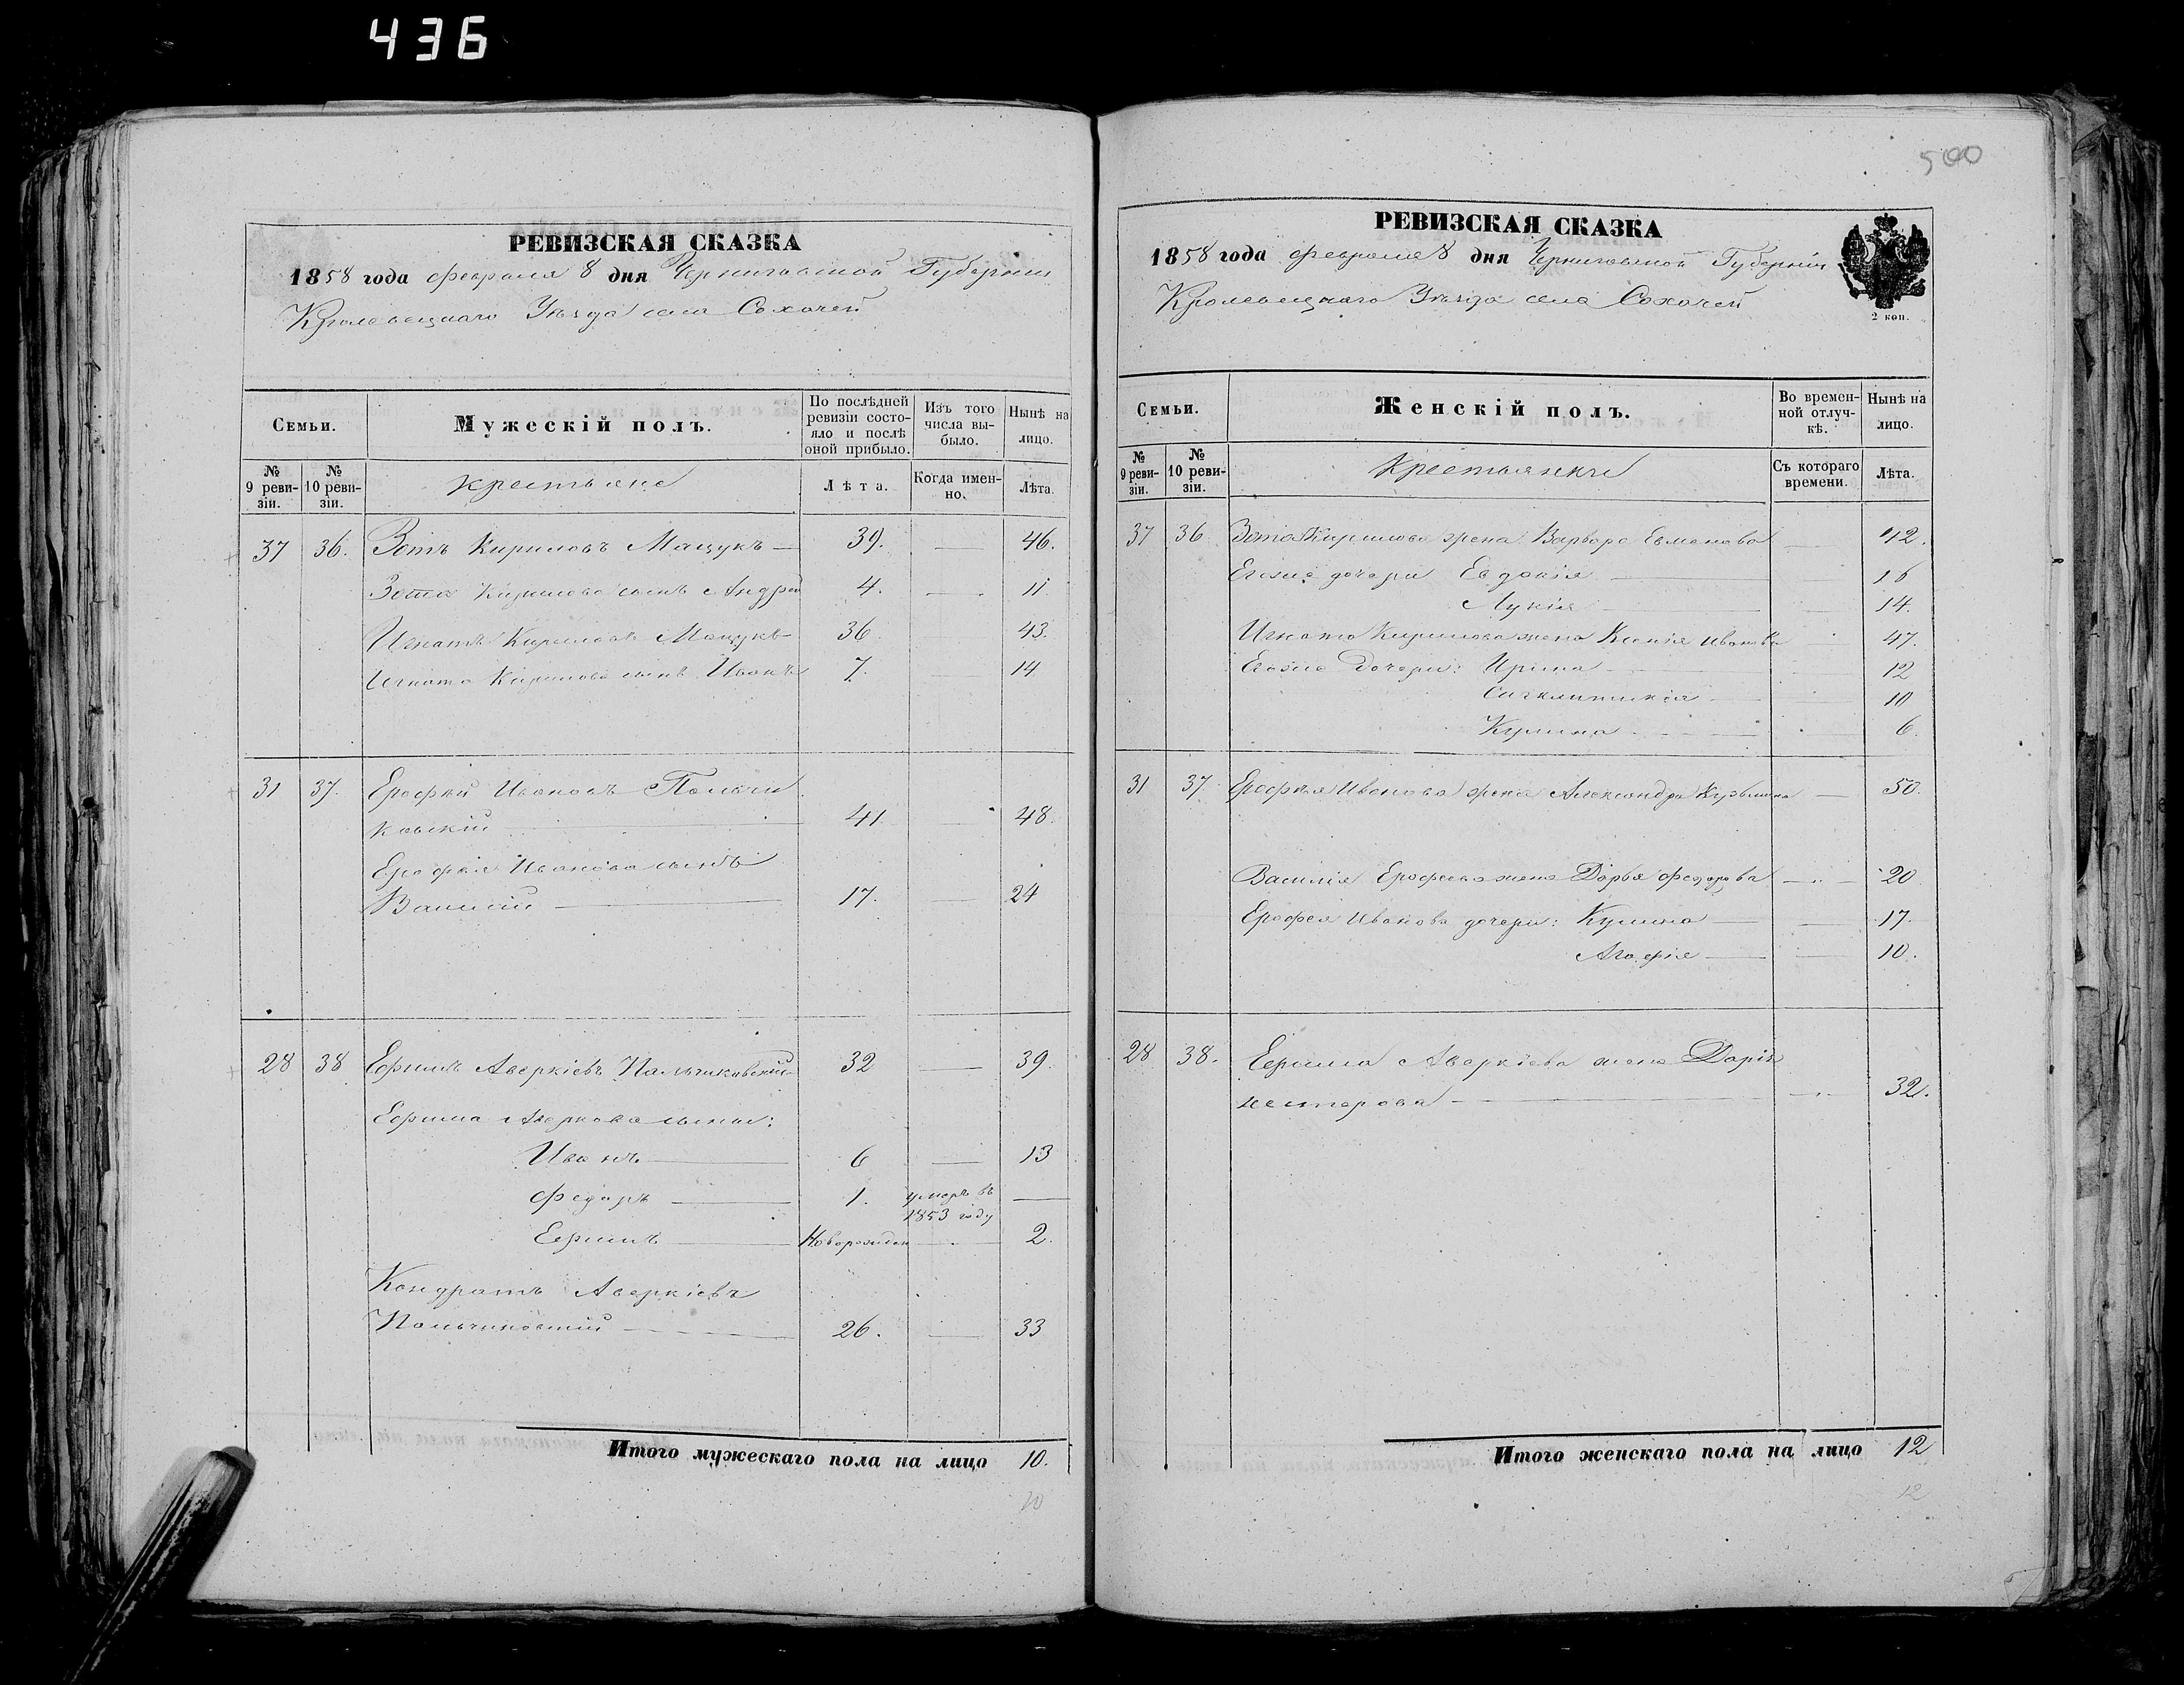 436
РЕВИЗСКАЯ СКАЗКА
1858 года февраля 8 дня Черниговской Губернии
Кролевецкаго Уѣзда села Сохачей
Семьи.
Мужескій полъ.
По послѣдней ревизіи состояло и послѣ оной прибыло.
Изъ того числа выбыло.
Нынѣ на лицо.
№ 9 ревизіи.
№ 10 ревизіи.
Крестьяне
Лѣта.
Когда именно.
Лѣта.
37 36. Зотъ Кириловъ Мацукъ — 39. — 46.
Зота Кирилова сынъ Андрей 4. — 11
Игнатъ Кириловъ Мацукъ 36 43.
Игната Кирилова сынъ Иванъ 7. 14
31 37. Ерофей Ивановъ Пальчи
ковскій 41 — 48.
Ерофея Иванова сынъ
Василій — 17. 24
28 38 Ефимъ Аверкіевъ Пальчиковскій 32 — 39.
Ефима Аверкова сыны:
Иванъ — 6 — 13
Федоръ — 1. умеръ въ —
1853 году
Ефимъ — Новорожден — 2.
Кондратъ Аверкіевъ
Пальчиковскій — 26. — 33
Итого мужескаго пола на лицо 10.
10
500
РЕВИЗСКАЯ СКАЗКА
1858 года февраля 8 дня Черниговской Губерніи
Кролевецкаго Уѣзда села Сохачей
2 коп.
Семьи.
Женскій полъ.
Во временной отлучкѣ.
Нынѣ на лицо.
№ 9 ревизіи.
№ 10 ревизіи.
Крестьянки
Съ котораго времени.
Лѣта.
37 36 Зота Кирилова жена Варвара Евменова — 42.
Егоже дочери Евдокія — 16
Лукія — 14.
Игната Кирилова жена Ксенія Иванова 47.
Егоже Дочери: Ирина — 12
Сигклитикія — 10
Кулина — 6.
31 37 Ерофея Иванова жена Александра Кузьмина — 50.
Василія Ерофеева жена Дарья Федорова — 20
Ерофея Иванова дочери: Кулина — 17.
Агафія — 10.
28 38. Ефима Аверкіева жена Дарія
Нестерова — 32.
Итого женскаго пола на лицо 12
12